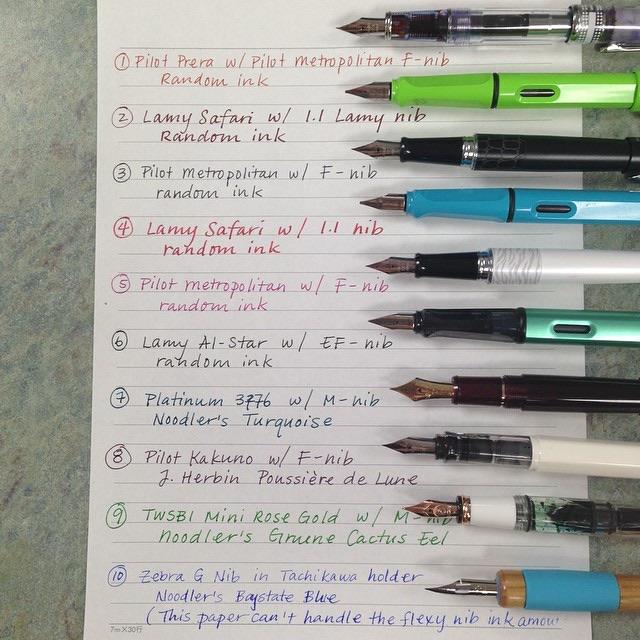 ① Pilot Prera w/ Pilot metropolitan F-nib
Random ink
② Lamy Safari w/ 1.1 Lamy nib
Random ink
③ Pilot Metropolitan w/ F-nib
random ink
④ Lamy Safari w/ 1.1 nib
random ink
⑤ Pilot metropolitan w/ F-nib
random ink
⑥ Lamy Al-Star w/ EF-nib
random ink
⑦ Platinum 3776 w/ M-nib
Noodler's Turquoise
⑧ Pilot Kakuno w/ F-nib
J. Herbin Poussière de Lune
⑨ TWSBI Mini Rose Gold w/ M-nib
Noodler's Gruene Cactus Eel
⑩ Zebra G Nib in Tachikawa holder
Noodler's Baystate Blue
(This paper can't handle the flexy nib ink amou
7m×30行